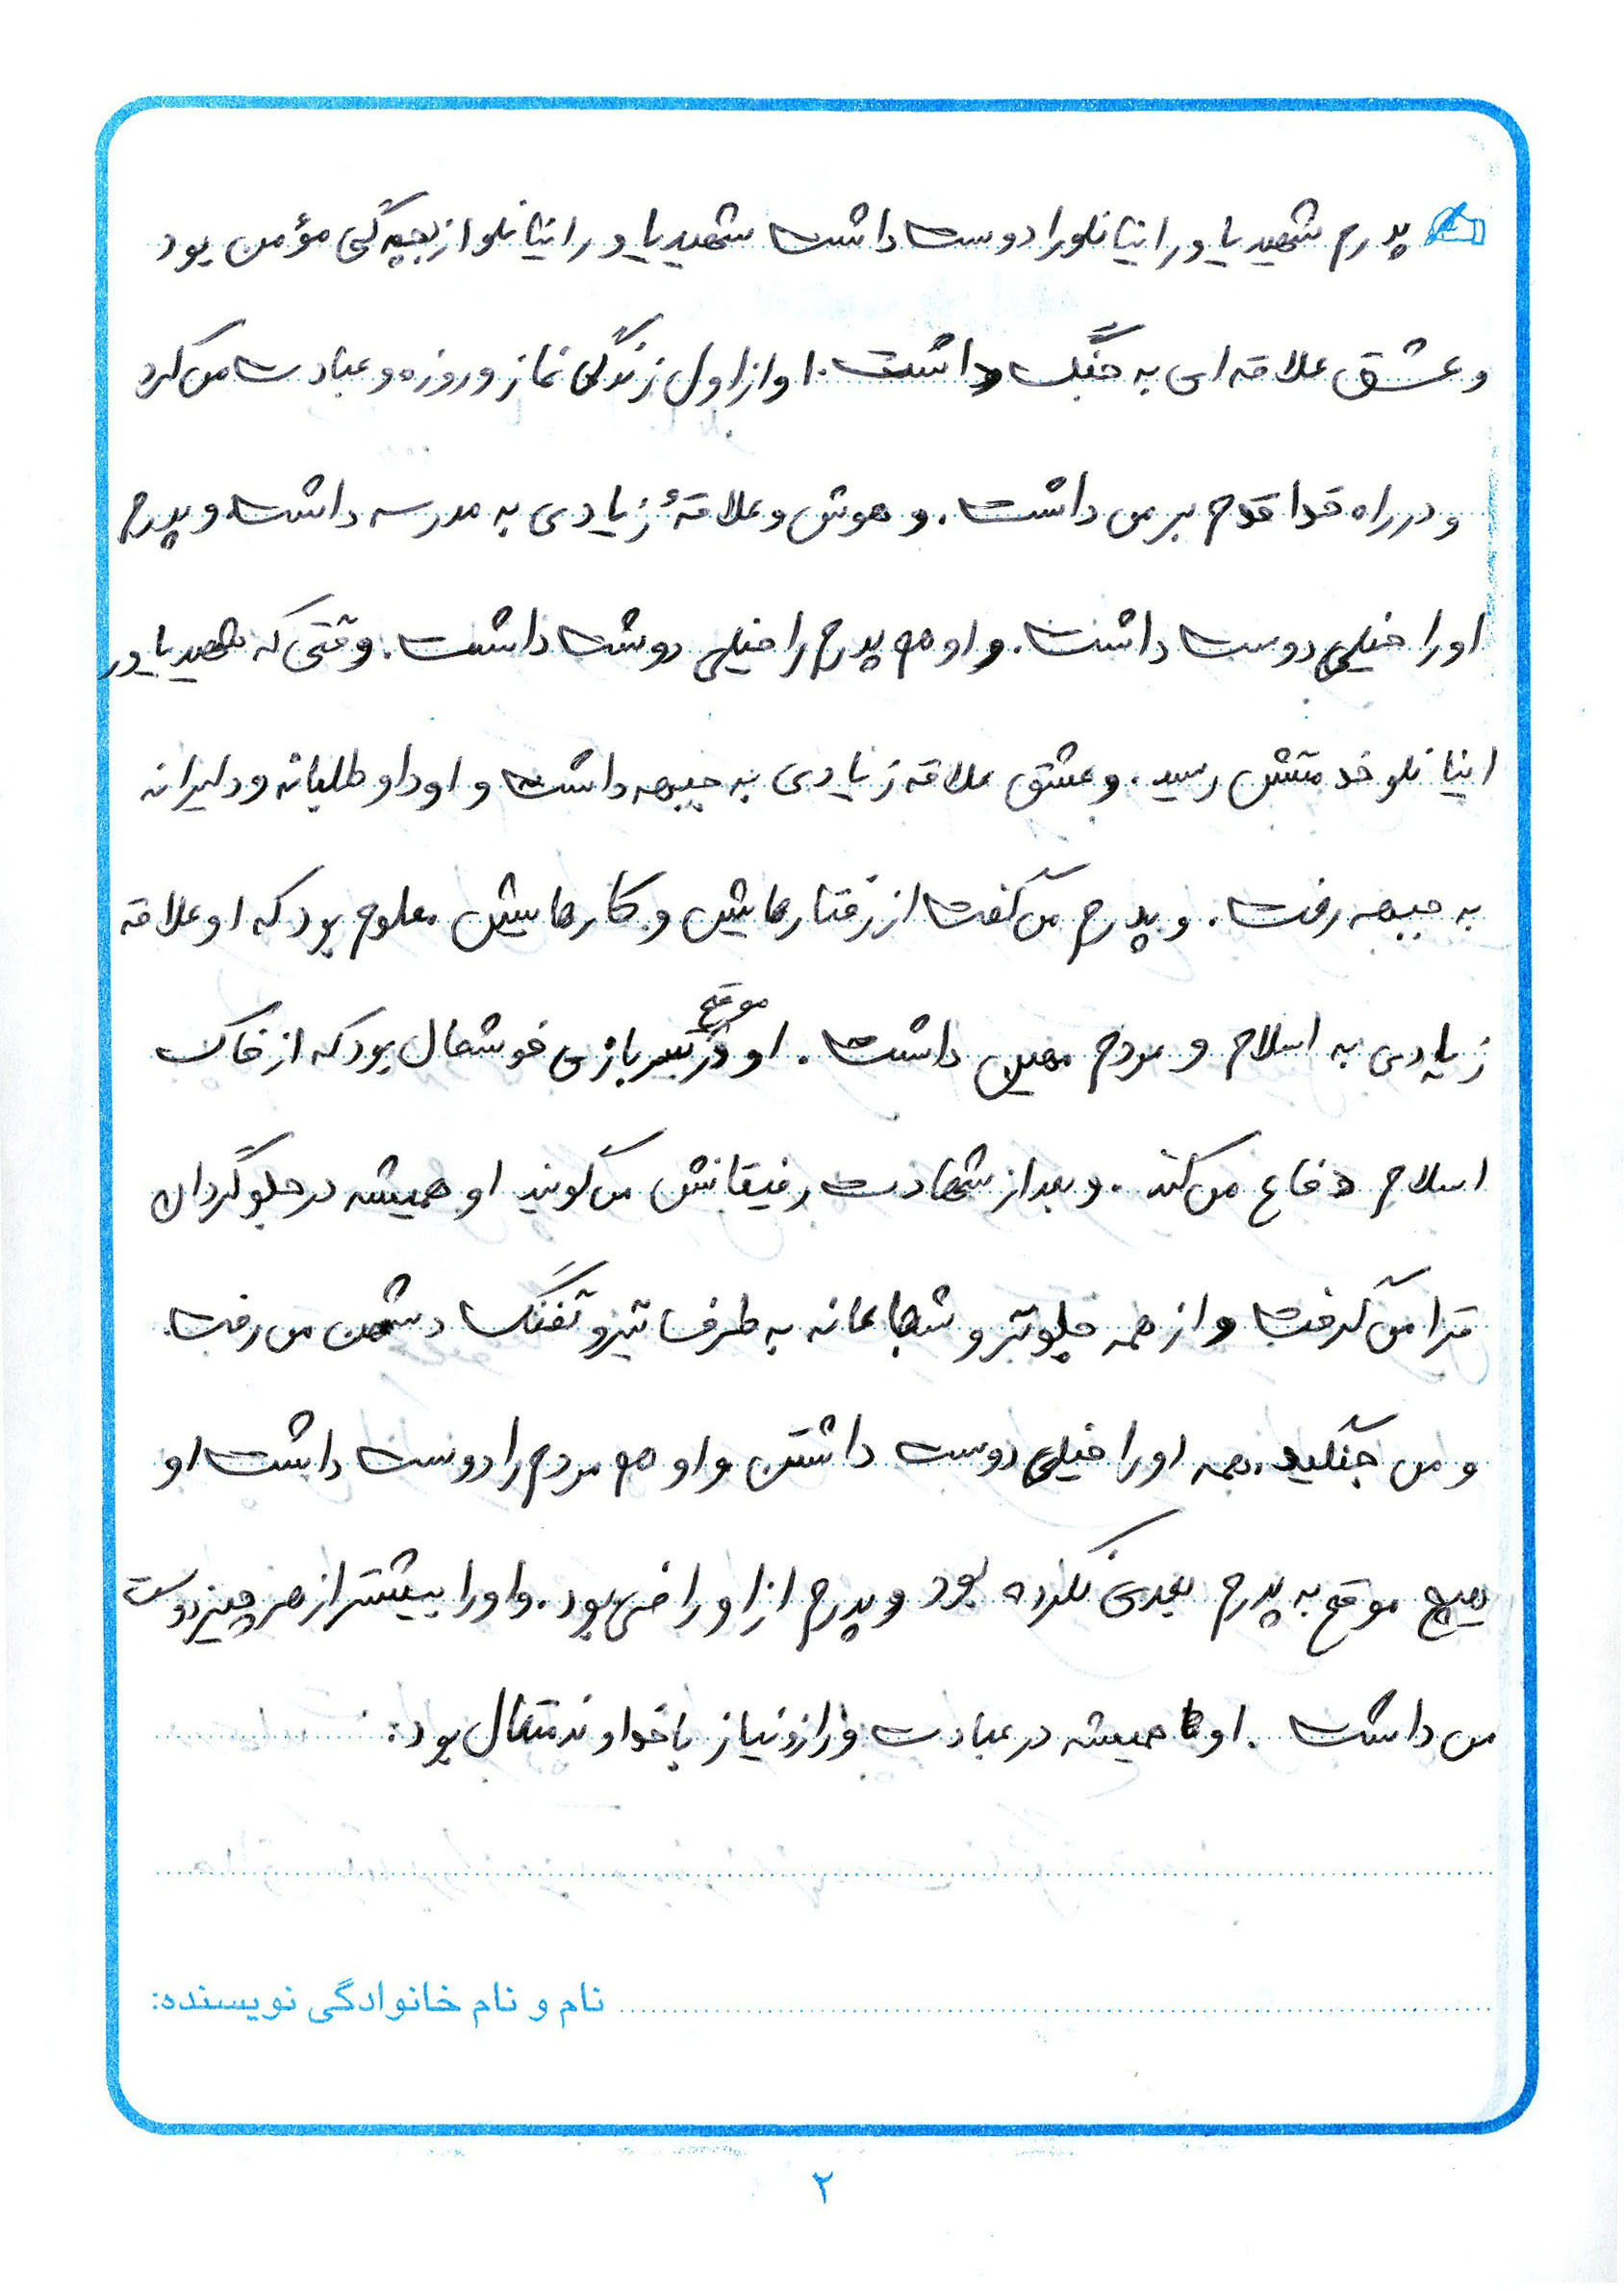 پدرم شهید یاور اینانلو را دوست داشت شهید یاور اینانلو از بچه گی مؤمن بود
و عشق علاقه ای به جنگ داشت. او از اول زندگی نماز و روزه و عبادت می کرد
و در راه خدا قدم بر می داشت. و هوش و علاقهٔ زیادی به مدرسه داشت و پدرم
او را خیلی دوست داشت. و او هم پدرم را خیلی دوشت داشت. وقتی که شهید یاور
اینانلو خدمتش رسید. و عشق علاقه زیادی به جبهه داشت و او داوطلبانه و دلیرانه
به جبهه رفت. و پدرم می گفت از رفتارهایش و کارهایش معلوم بود که او علاقه
زیادی به اسلام و مردم میهن داشت. او در موقع سربازی خوشحال بود که از خاک
اسلام دفاع می کند. و بعد از شهادت رفیقانش می گویند او همیشه در جلو گردان
قرا می گرفت و از همه جلوتر و شجاعانه به طرف تیر و تفنگ دشمن می رفت
و می جنگید. همه او را خیلی دوست داشتن و او هم مردم را دوست داشت او
هیچ موقع به پدرم بعدی نکرده بود و پدرم از او راضی بود. و او را بیشتر از هر چیز دوست
می داشت. او همیشه در عبادت و راز و نیاز با خداوند متعال بود.
نام و نام خانوادگی نویسنده:
۲